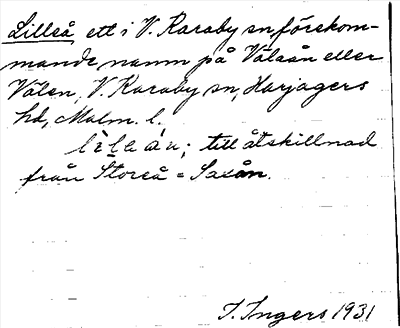 Lilleå ett i V. Karaby sn, förekom-
mande namn på Välaån eller
Välen, V. Karaby sn, Harjagers
hd, Malm. l.
till åtskillnad
från Storeå = Saxån.
I. Ingers 1931